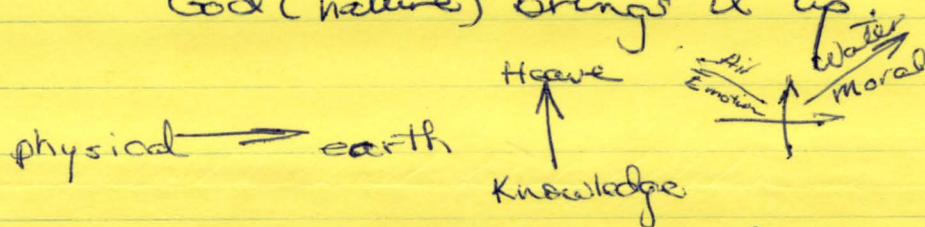 God (nature) brings it up.
Heave
Air
Emotion
Water
Moral
physical → earth
Knowledge